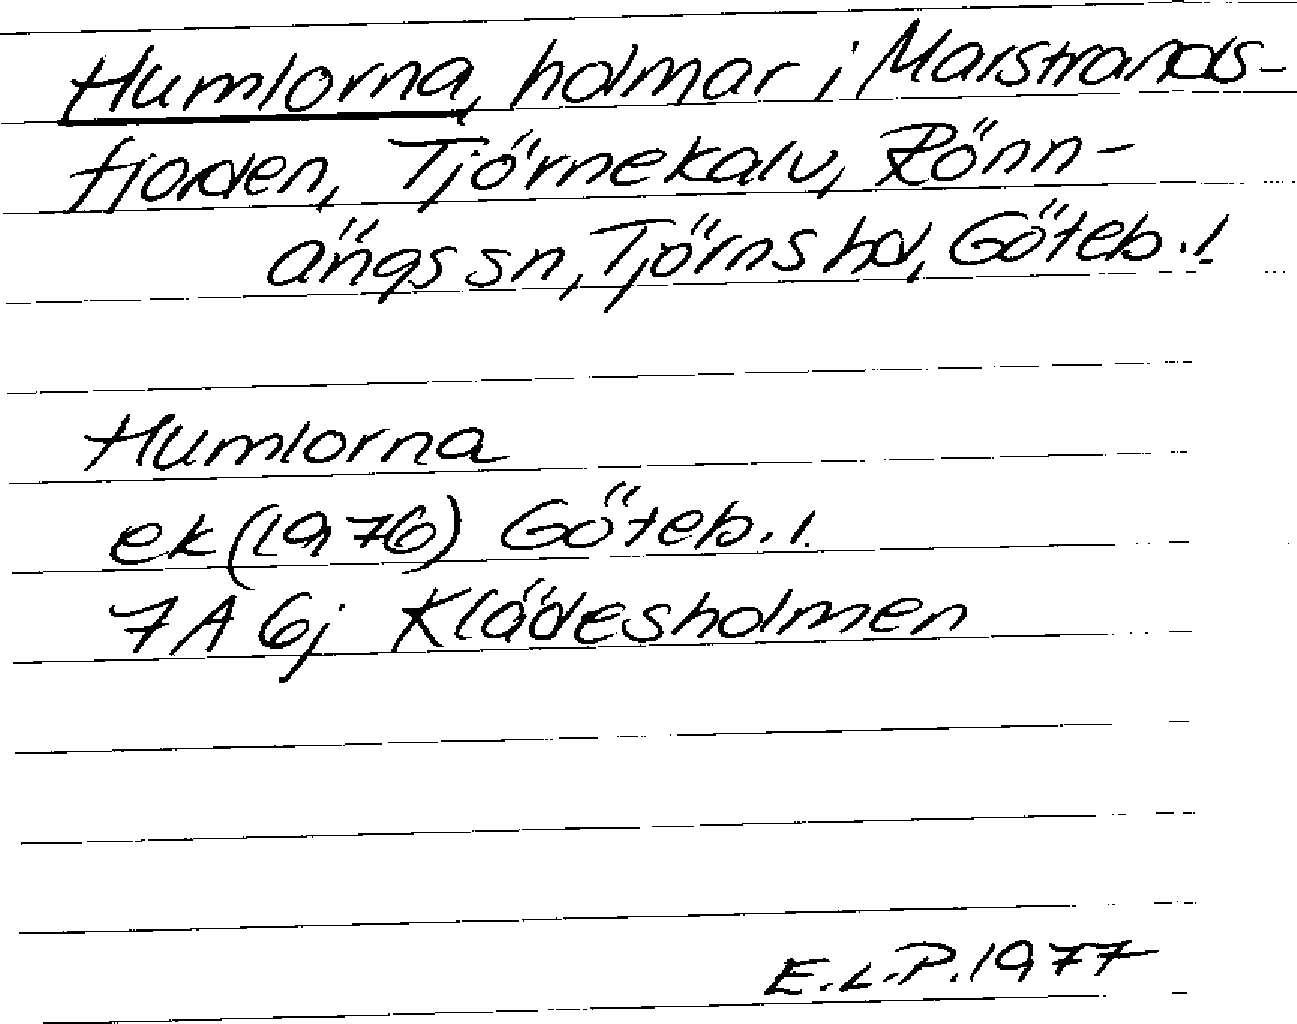 Humlorna, holmar i Marstrands-
fjorden, Tjörnekalv, Rönn-
ängs sn, Tjörns hd, Göteb. l.
Humlorna
ek (1976) Göteb. l.
7A 6j Klädesholmen
E.L.P. 1977